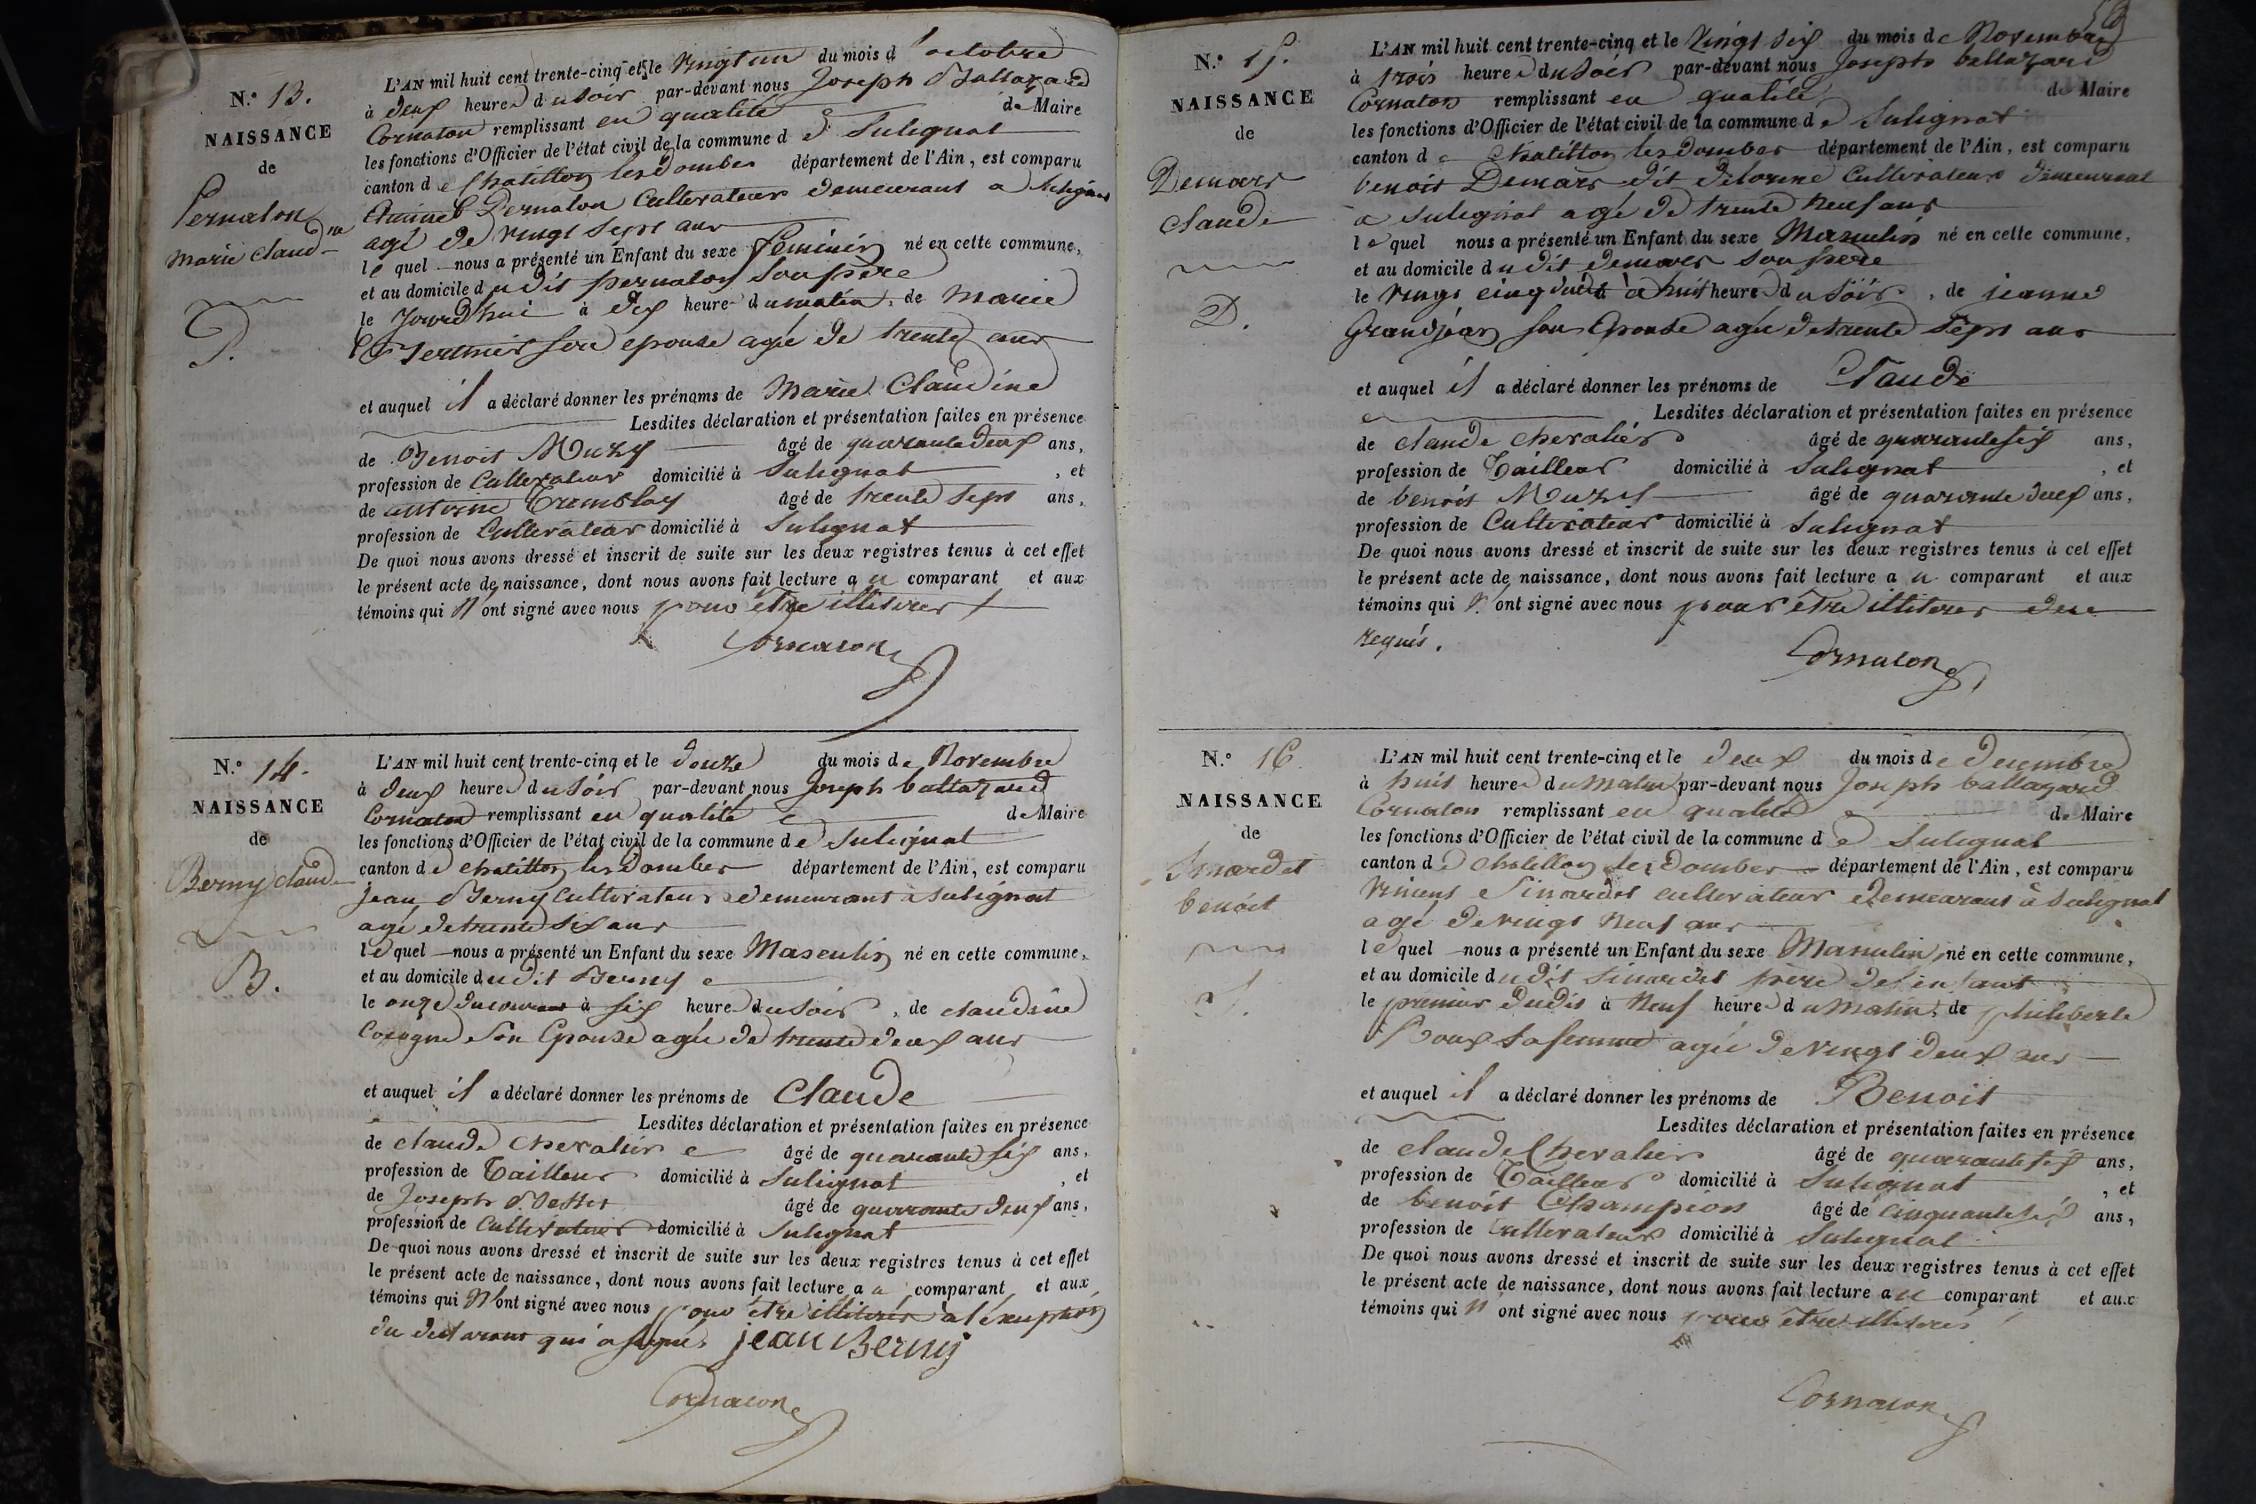 N.° 13.
NAISSANCE
de
Pernaton
marie Claud.ne
P.
L'AN mil huit cent trente-cinq et le vingt un du mois d'octobre
à deux heures du soir par-devant nous Joseph Baltazard
Cornaton remplissant en qualité de Maire
les fonctions d'Officier de l'état civil de la commune de Sulignat
canton de Chatillon les Dombes département de l'Ain, est comparu
Pernaton Cultivateur demeurant a Sulignat
agé de vingt sept ans
le quel nous a présenté un Enfant du sexe Féminin né en cette commune,
et au domicile du dit pernaton son père
le jourdhui à dix heures du matin, de marie
son epouse agée de trente ans
et auquel il a déclaré donner les prénoms de Marie Claudine
Lesdites déclaration et présentation faites en présence
de Benoit Muzy âgé de quarante deux ans,
profession de Cultivateur domicilié à Sulignat, et
de antoine Tremblay âgé de trente sept ans,
profession de Cultivateur domicilié à Sulignat
De quoi nous avons dressé et inscrit de suite sur les deux registres tenus à cet effet
le présent acte de naissance, dont nous avons fait lecture au comparant et aux
témoins qui n'ont signé avec nous pour être illiterés
Cornaton
N.° 14.
NAISSANCE
de
Berny claude
B.
L'AN mil huit cent trente-cinq et le douze du mois de Novembre
à deux heures du soir par-devant nous Joseph baltazard
Cornaton remplissant en qualité de Maire
les fonctions d'Officier de l'état civil de la commune de Sulignat
canton de chatillon les Dombes département de l'Ain, est comparu
jean Berny cultivateur demeurant a sulignat
agé de trente six ans
le quel nous a présenté un Enfant du sexe Masculin né en cette commune,
et au domicile du dit Berny
le onze du courant à six heures du soir, de claudine
Cologne son Epouse agée de trente deux ans
et auquel il a déclaré donner les prénoms de Claude
Lesdites déclaration et présentation faites en présence
de claude chevalier âgé de quarante six ans,
profession de Tailleur domicilié à Sulignat, et
de Joseph âgé de quarante deux ans,
profession de Cultivateur domicilié à Sulignat
De quoi nous avons dressé et inscrit de suite sur les deux registres tenus à cet effet
le présent acte de naissance, dont nous avons fait lecture au comparant et aux
témoins qui n'ont signé avec nous pour être illiterés a l'exeption
du declarant qui a signé. jean Berny
Cornaton
N.° 15.
NAISSANCE
de
Demars
claude
D.
L'AN mil huit cent trente-cinq et le vingt six du mois de Novembre
à trois heures du soir par-devant nous Joseph baltazard
Cornaton remplissant en qualité de Maire
les fonctions d'Officier de l'état civil de la commune de Sulignat
canton de Chatillon les Dombes département de l'Ain, est comparu
benoit Demars dit Delorme Cultivateur demeurant
a sulignat agé de trente neuf ans
le quel nous a présenté un Enfant du sexe Masculin né en cette commune,
et au domicile du dit demars son père
le vingt cinq dudit à huit heures du soir, de jeanne
Grandjean son Epouse agée de trente sept ans
et auquel il a déclaré donner les prénoms de Claude
Lesdites déclaration et présentation faites en présence
de claude chevalier âgé de quarante six ans,
profession de Tailleur domicilié à Sulignat, et
de benoit Muzy âgé de quarante deux ans,
profession de Cultivateur domicilié à Sulignat
De quoi nous avons dressé et inscrit de suite sur les deux registres tenus à cet effet
le présent acte de naissance, dont nous avons fait lecture au comparant et aux
témoins qui n'ont signé avec nous pour être illiterés de ce
requis.
Cornaton
N.° 16.
NAISSANCE
de
Sinardet
benoit
S.
L'AN mil huit cent trente-cinq et le deux du mois de decembre
à huit heures du Matin par-devant nous Joseph baltazard
Cornaton remplissant en qualité de Maire
les fonctions d'Officier de l'état civil de la commune de Sulignat
canton de Chatillon les Dombes département de l'Ain, est comparu
Vincent Sinardet cultivateur demeurant à Sulignat
agé de vingt neuf ans
le quel nous a présenté un Enfant du sexe Masculin, né en cette commune,
et au domicile du dit Sinardet père de l'enfant
le premier dudit à Neuf heures du Matin, de philiberte
sa femme agée de vingt deux ans
et auquel il a déclaré donner les prénoms de Benoit
Lesdites déclaration et présentation faites en présence
de claude Chevalier âgé de quarante six ans,
profession de Tailleur domicilié à Sulignat, et
de benoit Champion âgé de cinquante six ans,
profession de Cultivateur domicilié à Sulignat
De quoi nous avons dressé et inscrit de suite sur les deux registres tenus à cet effet
le présent acte de naissance, dont nous avons fait lecture au comparant et aux
témoins qui n'ont signé avec nous pour être illiterés
Cornaton